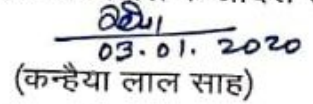 03.01.2020
(कन्हैया लाल साह)